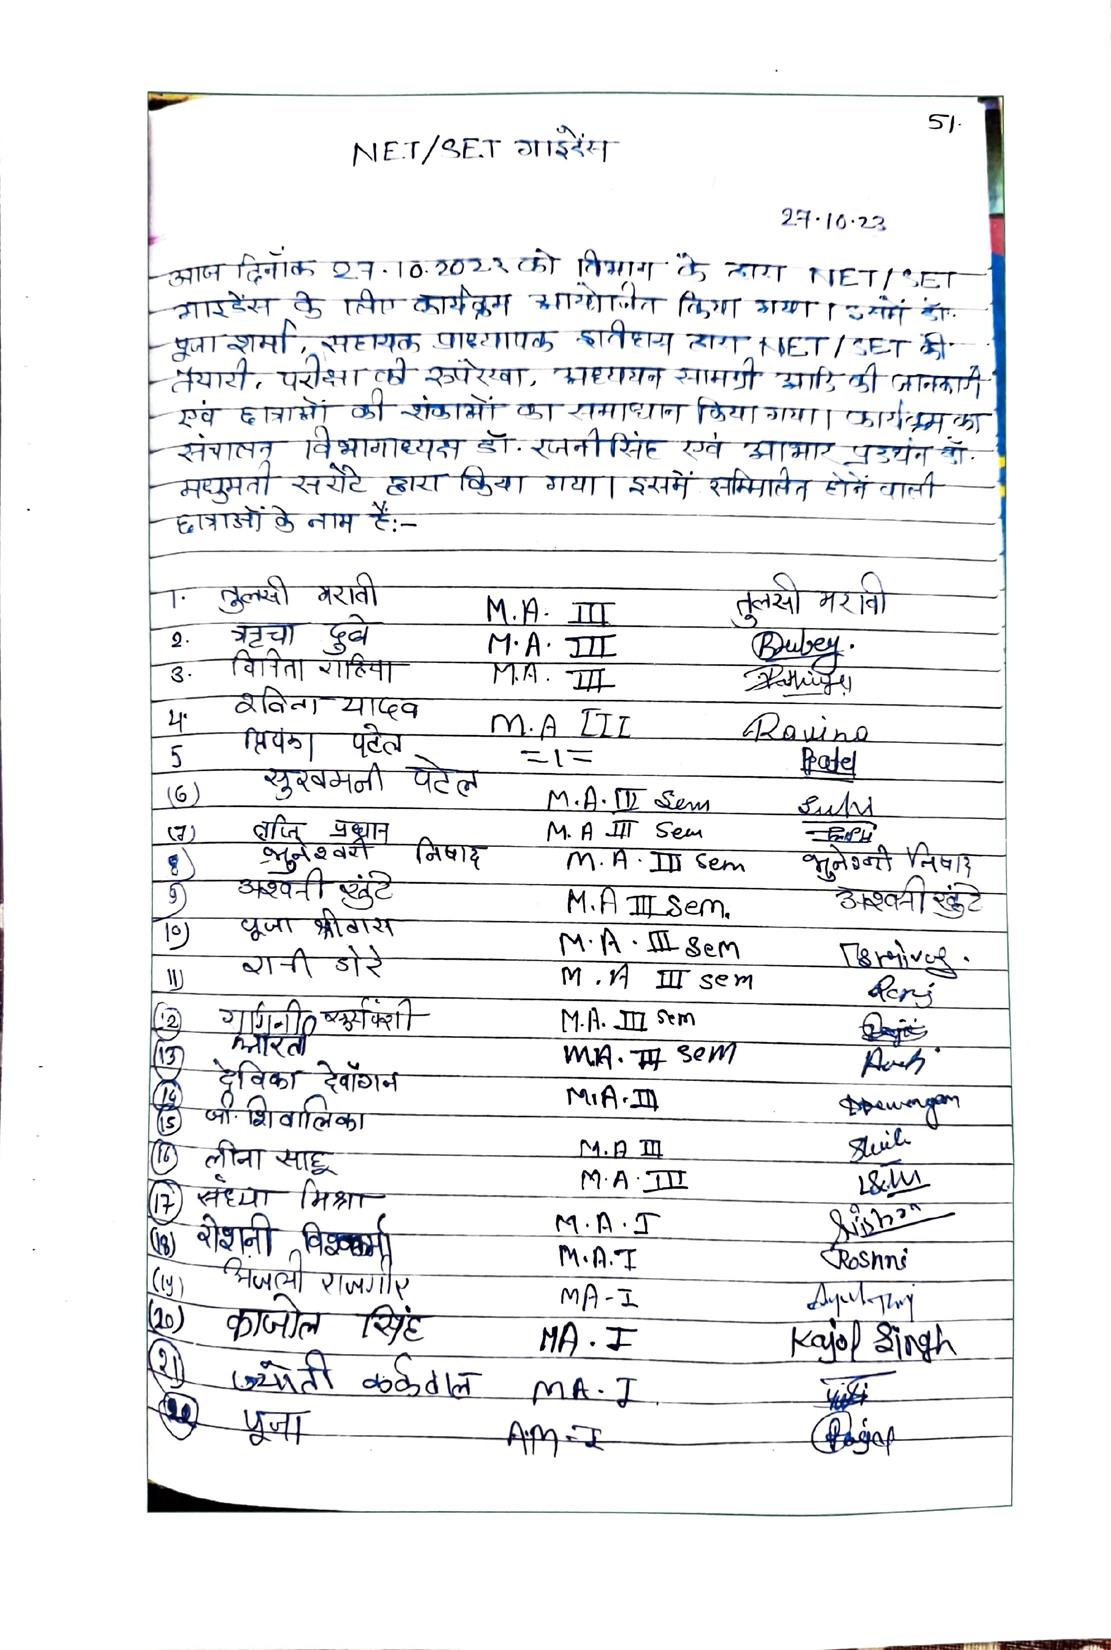 51.
NET/SET गाइडेंस
27.10.23
आज दिनाँक 27.10.2022 को विभाग के द्वारा NET/SET
गाइडेंस के लिए कार्यक्रम आयोजित किया गया। इसमें डॉ.
पूजा शर्मा, सहायक प्राध्यापक इतिहास द्वारा NET/SET की
तैयारी, परीक्षा की रूपरेखा, अध्ययन सामग्री आदि की जानकारी
एवं छात्राओं की शंकाओं का समाधान किया गया। कार्यक्रम का
संचालन विभागाध्यक्ष डॉ. रजनी सिंह एवं आभार प्रदर्शन डॉ.
मधुमती सरोटे द्वारा किया गया। इसमें सम्मिलित होने वाली
छात्राओं के नाम हैं:-
1. तुलसी मरावी M.A. III तुलसी मरावी
2. ऋचा दुबे M.A. III Dubey.
3. विनिता राठिया M.A. III
4. रविना यादव M.A III Ravina
5 प्रियंका पटेल =1= Patel
(6) सुखमनी पटेल M.A. III Sem
(7) प्रधान M.A III Sem
8) भुनेश्वरी निषाद M.A. III Sem भुनेश्वरी निषाद
9) अश्वनी खुंटे M.A III Sem. अश्वनी खुंटे
10) पूजा श्रीवास M.A. III Sem
11) रानी डोरे M.A III sem Rani
(12) M.A. III Sem
(13) आरती M.A. III sem
(14) देविका देवाँगन M.A.III Dewangan
(15) जी. शिवालिका M.A III
(16) लीना साहू M.A. III
(17) संध्या मिश्रा M.A. I
(18) रोशनी विश्वकर्मा M.A.I Roshni
(19) अंजली राजगीर MA-I
(20) काजोल सिंह MA. I Kajol Singh
(21) ज्योती कर्कवाल MA. I
(22) पूजा A.M-I